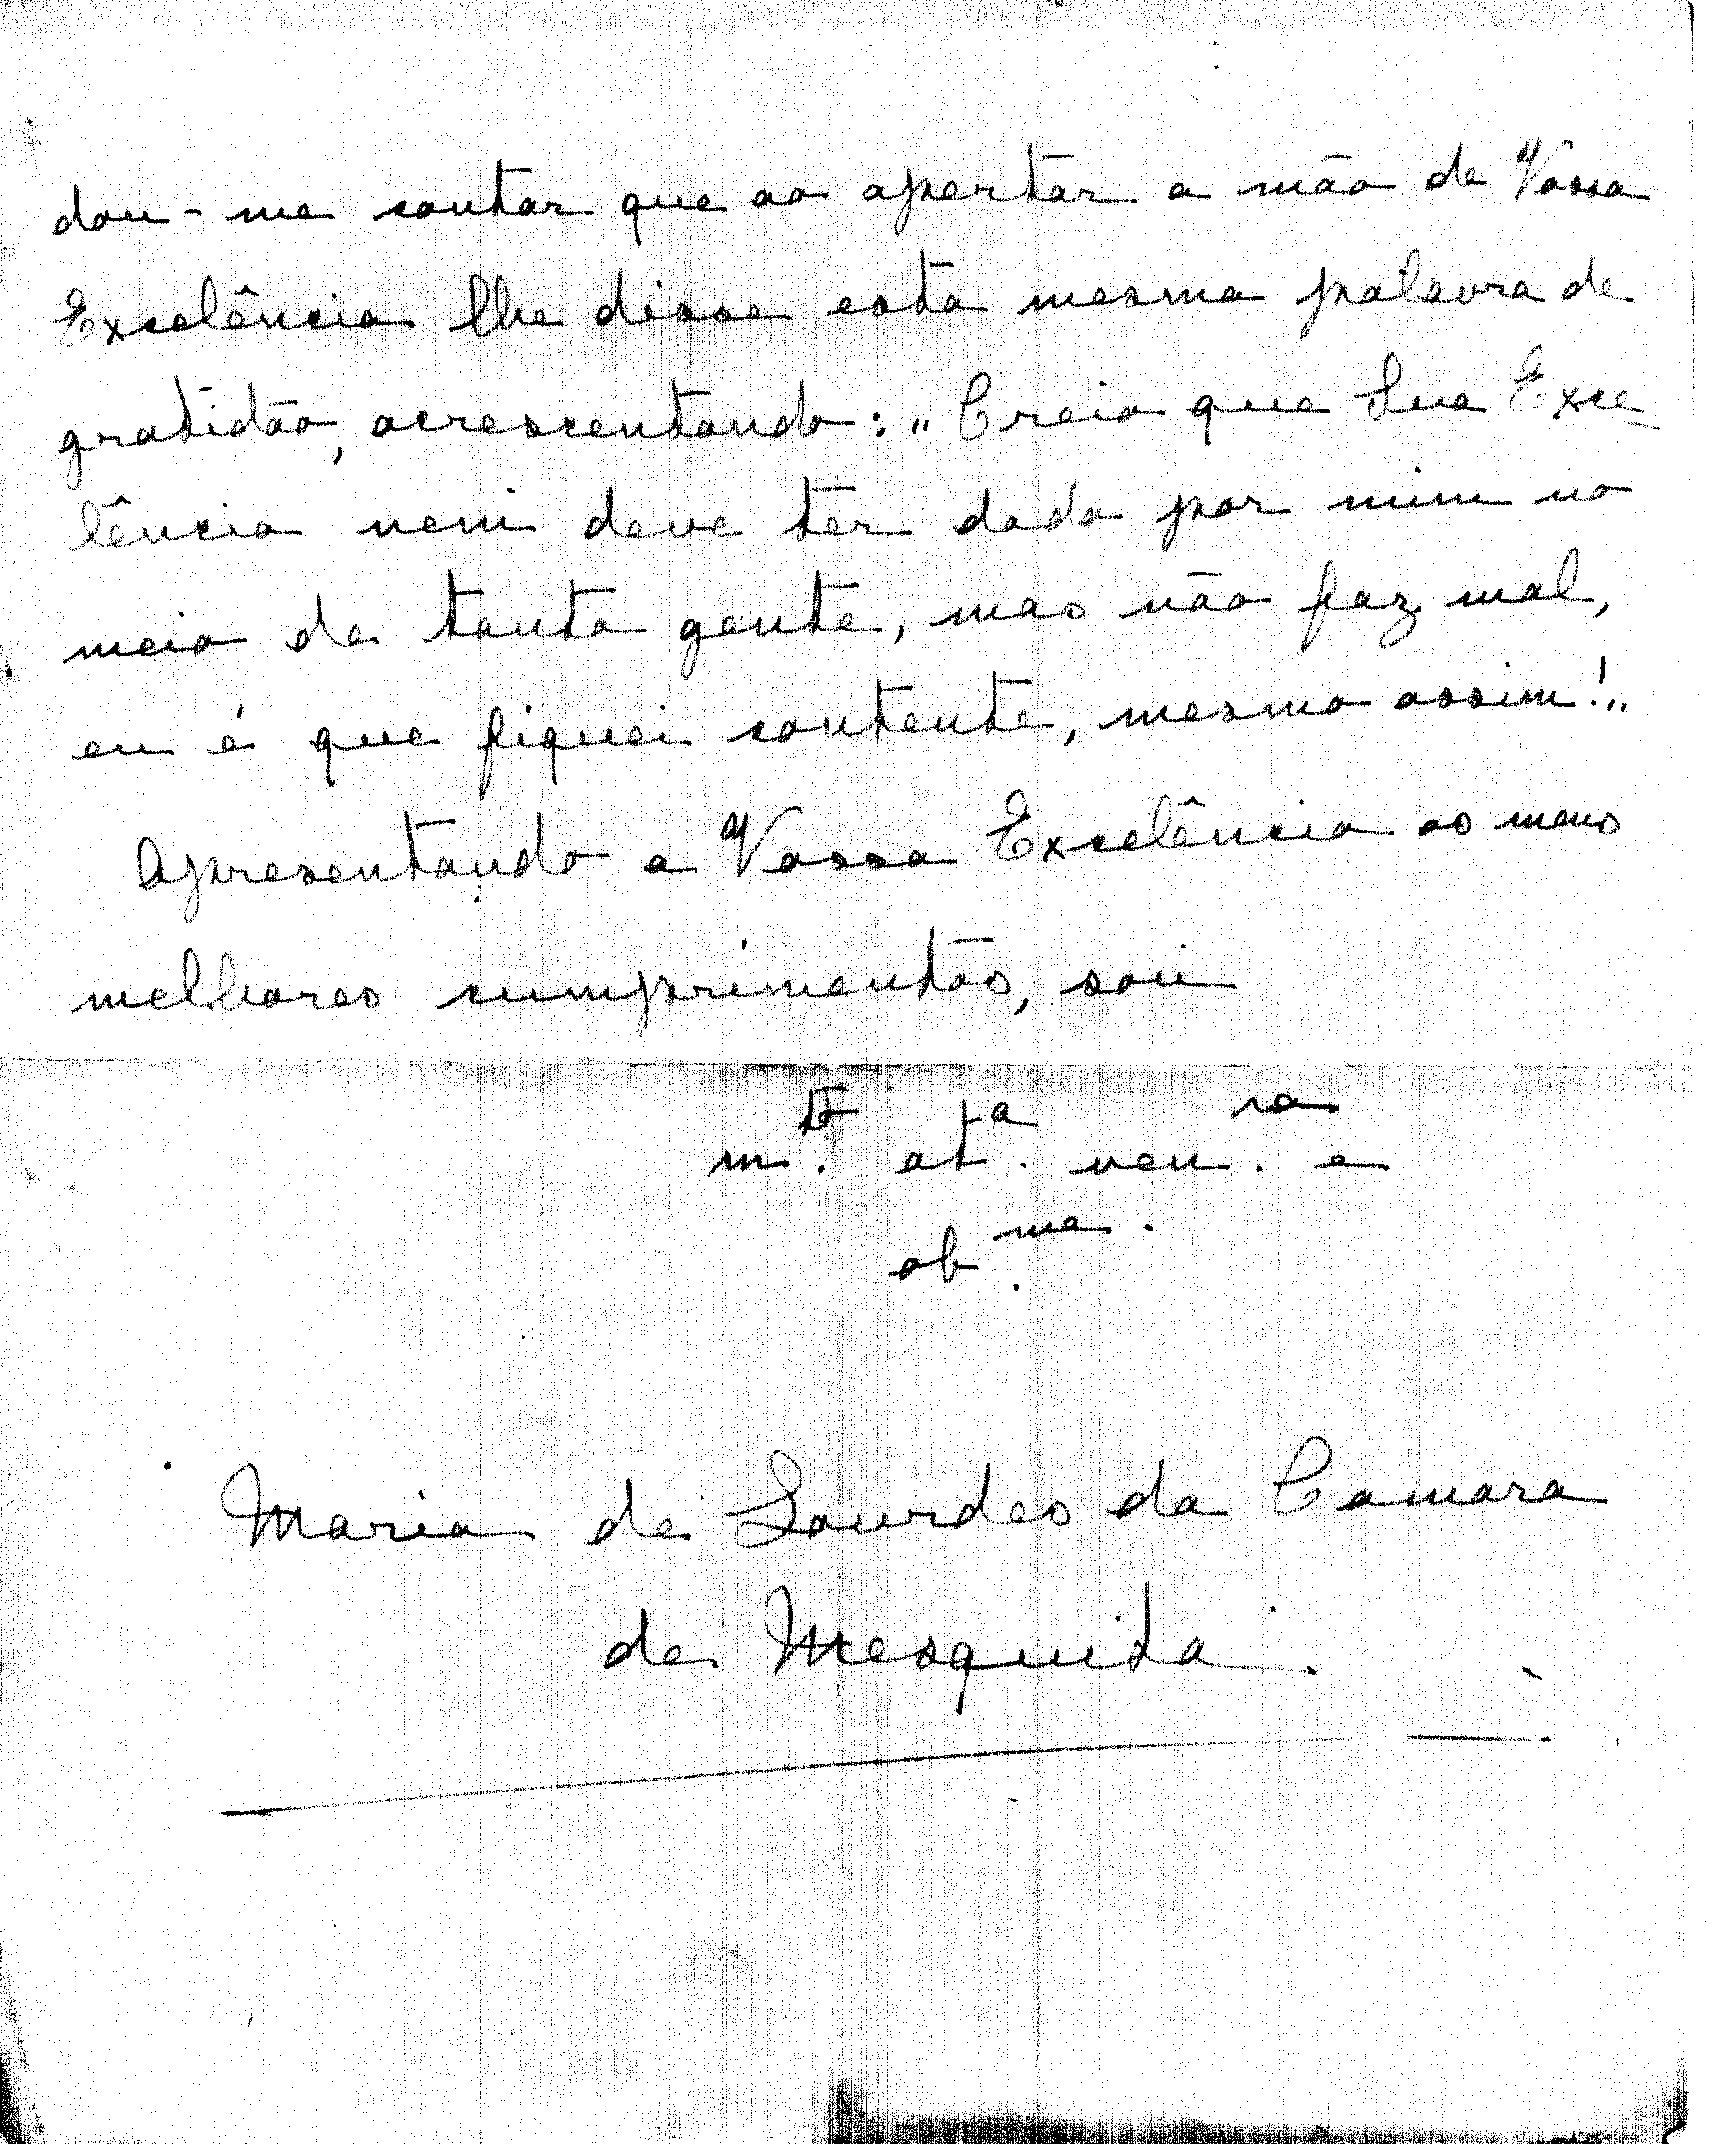 dou-me contar que ao apertar a mão de Vossa
Excelência lhe disse esta mesma palavra de
gratidão, acrescentando: "Creio que Sua Exce-
lência nem deve ter dado por mim no
meio de tanta gente, mas não faz mal,
eu é que fiquei contente, mesmo assim!"
Apresentando a Vossa Excelência os meus
melhores cumprimentos, sou
m.to at.ta ven.ra e
ob.ma.
Maria de Lourdes da Camara
de Mesquita.